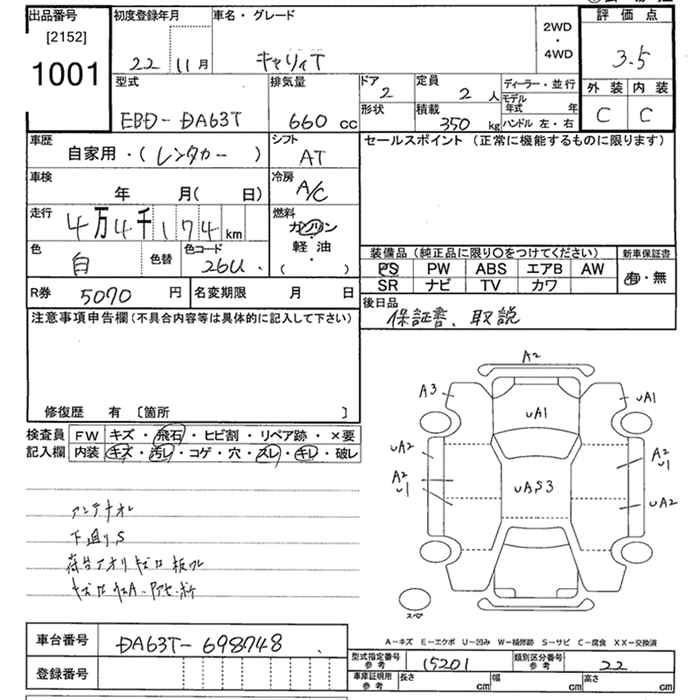 出品番号
[2152]
1001
初度登録年月
22 11月
車名・グレード
キャリィT
2WD
・
4WD
評価点
3.5
外装 内装
C C
型式
EBD-DA63T
排気量
660 cc
ドア
2
定員
2 人
ディーラー・並行
モデル年式 年
形状
積載
350 kg
ハンドル 左・右
車歴
自家用・(レンタカー)
シフト
AT
セールスポイント (正常に機能するものに限ります)
車検
年 月( 日)
冷房
A/C
走行
4万4千174 km
燃料
ガソリン
軽油
( )
色
白
色替
色コード
26U
装備品 (純正品に限り○をつけてください)
PS PW ABS エアB AW
SR ナビ TV カワ
新車保証書
有・無
R券 5070 円
名変期限 月 日
後日品
保証書、取説
注意事項申告欄(不具合内容等は具体的に記入して下さい)
修復歴 有 [箇所 ]
検査員記入欄
FW キズ・飛石・ヒビ割・リペア跡・×要
内装 キズ・汚レ・コゲ・穴・スレ・キレ・破レ
アンテナオレ
下廻りS
A2
A3
UA1
UA1
UA2
A2
U1
A2
U1
UAS3
UA2
スペア
A-キズ E-エクボ U-凹み W-補修跡 S-サビ C-腐食 XX-交換済
車台番号 DA63T-698748
登録番号
型式指定番号 参考 15201
類別区分番号 参考 22
車庫証明用 参考 長さ cm 幅 cm 高さ cm